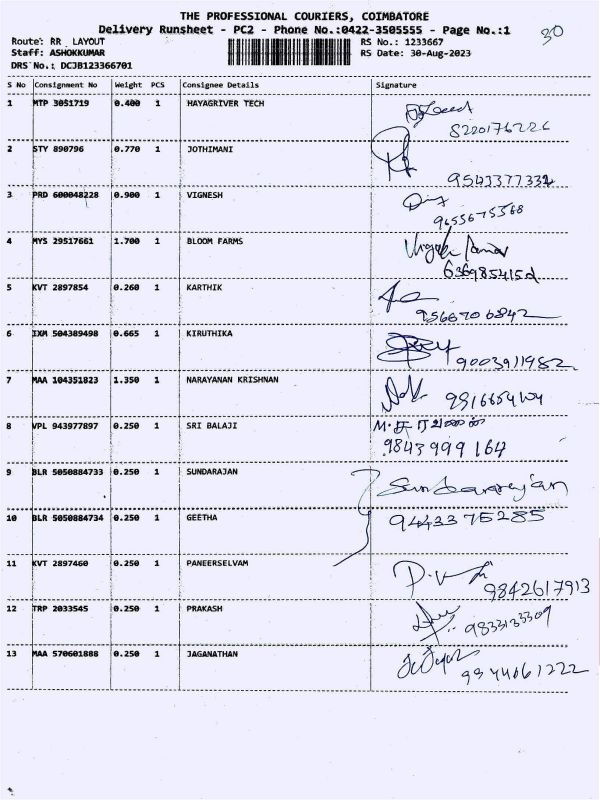 THE PROFESSIONAL COURIERS, COIMBATORE
Delivery Runsheet - PC2 - Phone No.:0422-3505555 - Page No.:1
30
Route: RR LAYOUT
RS No.: 1233667
Staff: ASHOKKUMAR
RS Date: 30-Aug-2023
DRS No.: DCJB123366701
S No Consignment No Weight PCS Consignee Details Signature
1 MTP 3051719 0.400 1 HAYAGRIVER TECH
8220176226
2 STY 890796 0.770 1 JOTHIMANI
9543377332
3 PRD 600048228 0.900 1 VIGNESH
9655675568
4 MYS 29517661 1.700 1 BLOOM FARMS
5 KVT 2897854 0.260 1 KARTHIK
9566706842
6 IXM 504389498 0.665 1 KIRUTHIKA
9003911982
7 MAA 104351823 1.350 1 NARAYANAN KRISHNAN
8 VPL 943977897 0.250 1 SRI BALAJI M. சரவணன்
9843999164
9 BLR 5050884733 0.250 1 SUNDARAJAN
Sundararajan
10 BLR 5050884734 0.250 1 GEETHA 9443375285
11 KVT 2897460 0.250 1 PANEERSELVAM
9842617913
12 TRP 2033545 0.250 1 PRAKASH
9833133309
13 MAA 570601888 0.250 1 JAGANATHAN
9344061222